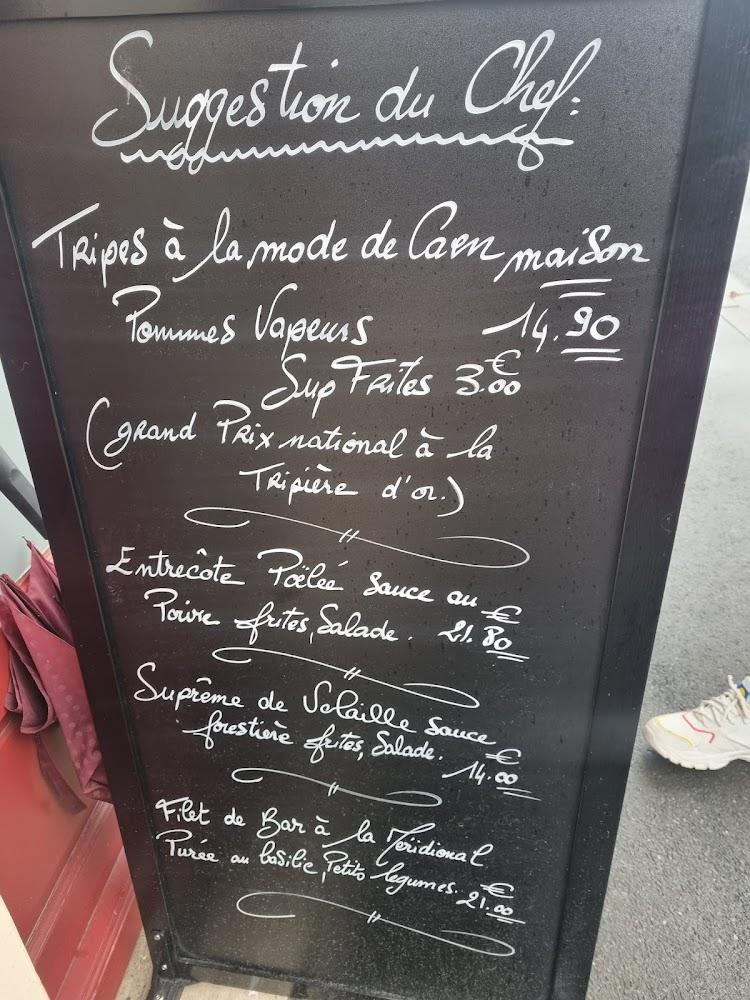 Suggestion du Chef:
Tripes à la mode de Caen maison
Pommes Vapeurs 14.90
Sup Frites 3.00€
(grand Prix national à la
Tripière d'or.)
Entrecôte Poëleé sauce au
Poivre frites, Salade. 21.80€
Suprême de Volaille sauce
forestière frites, Salade. 14.00€
Filet de Bar à la Méridional
Purée au basilic, Petits legumes. 21.00€